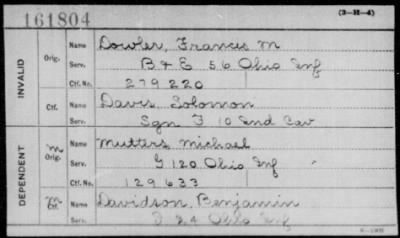 161804
(3-H-4)
INVALID
Orig.
Name Dowler, Francis M
Serv. B & E 56 Ohio Inf
Ctf. No. 279220
Ctf.
Name Davis, Solomon
Serv. Sgn F 10 Ind Cav
DEPENDENT
m Orig.
Name Mutters, Michael
Serv. G 120 Ohio Inf
Ctf. No. 129633
m Ctf.
Name Davidson, Benjamin
Serv. 24 Ohio Inf